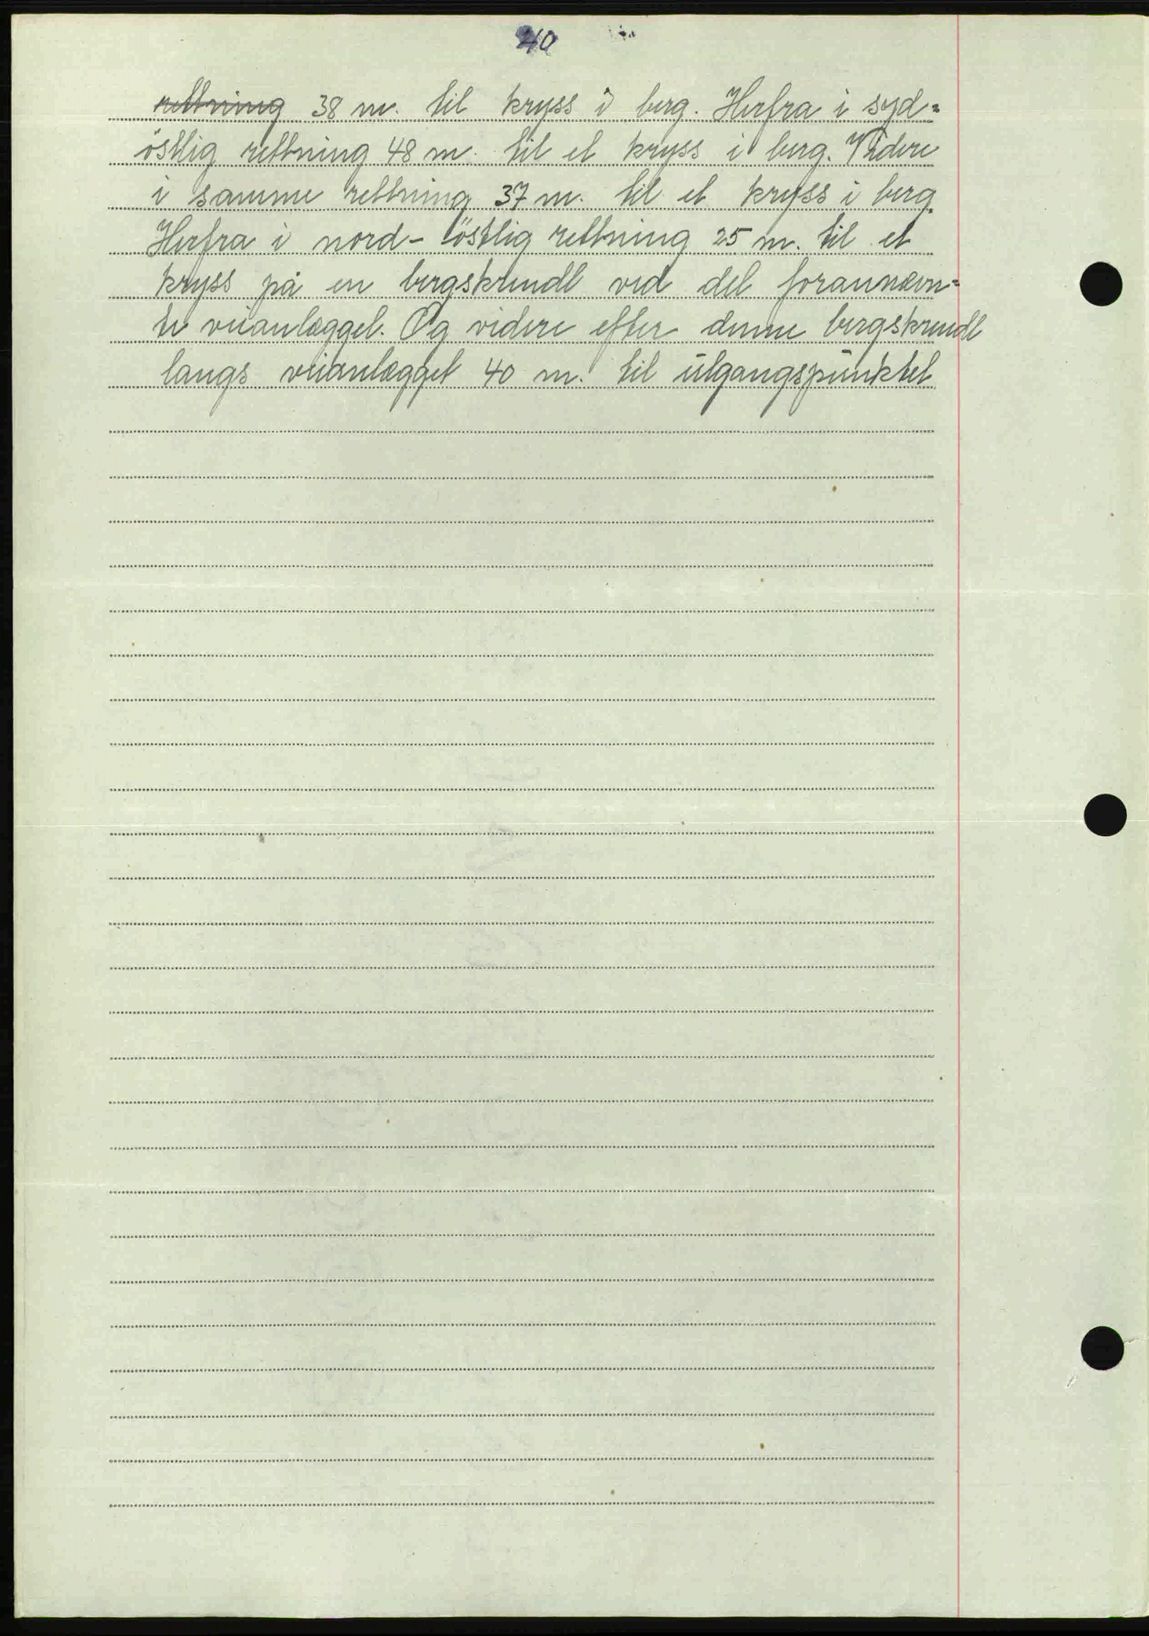 40
rettning 38 m. til kryss i berg. Herfra i syd=
östlig rettning 48 m. til et kryss i berg. Videre
i samme rettning 37 m. til et kryss i berg.
Herfra i nord- östlig rettning 25 m. til et
kryss på en bergskrendt ved det forannævn=
te veianlægget. Og videre efter denne bergskrendt
langs veianlægget 40 m. til utgangspunktet